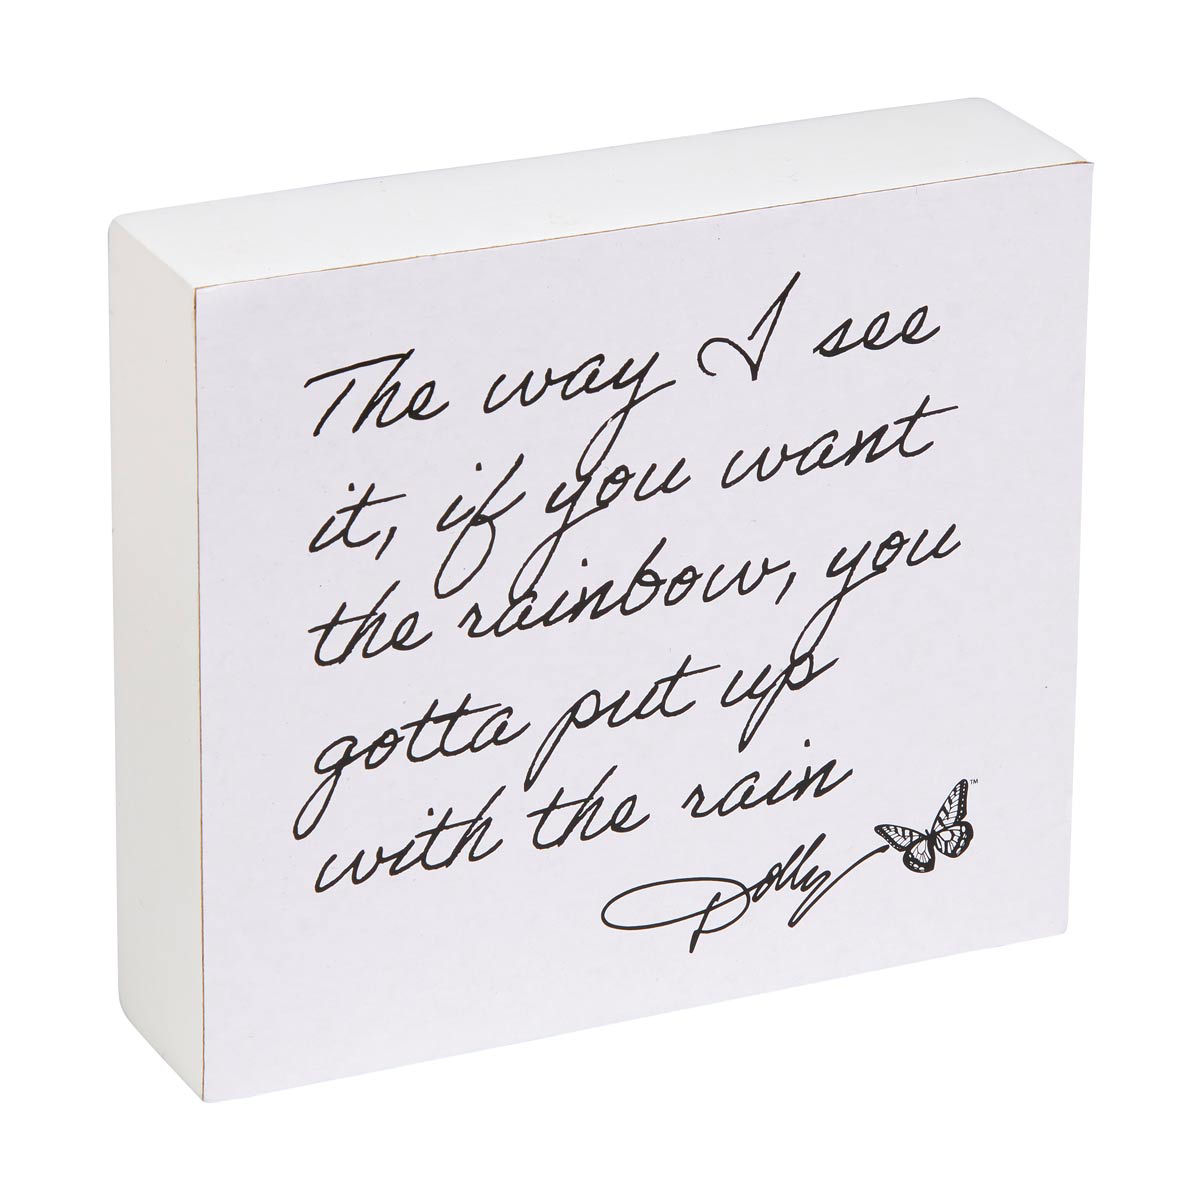 The way I see
it, if you want
the rainbow, you
gotta put up
with the rain
Dolly
™